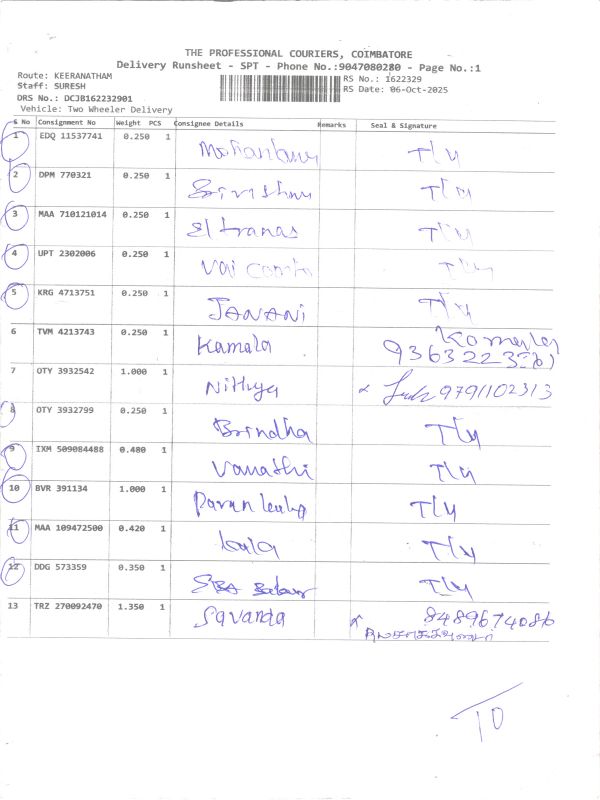 THE PROFESSIONAL COURIERS, COIMBATORE
Delivery Runsheet - SPT - Phone No.:9047080280 - Page No.:1
Route: KEERANATHAM
RS No.: 1622329
Staff: SURESH
RS Date: 06-Oct-2025
DRS No.: DCJB162232901
Vehicle: Two Wheeler Delivery
S No Consignment No Weight PCS Consignee Details Remarks Seal & Signature
1 EDQ 11537741 0.250 1 T/y
2 DPM 770321 0.250 1 T/y
3 MAA 710121014 0.250 1 T/y
4 UPT 2302006 0.250 1 T/y
5 KRG 4713751 0.250 1 JANANi T/y
6 TVM 4213743 0.250 1 Kamala
7 OTY 3932542 1.000 1 Nithya 9791102313
8 OTY 3932799 0.250 1 Brindha T/y
9 IXM 509084488 0.480 1 Vanathi T/y
10 BVR 391134 1.000 1 T/y
11 MAA 109472500 0.420 1 kala T/y
12 DDG 573359 0.350 1 T/y
13 TRZ 270092470 1.350 1 Savanda 8489674086
TO